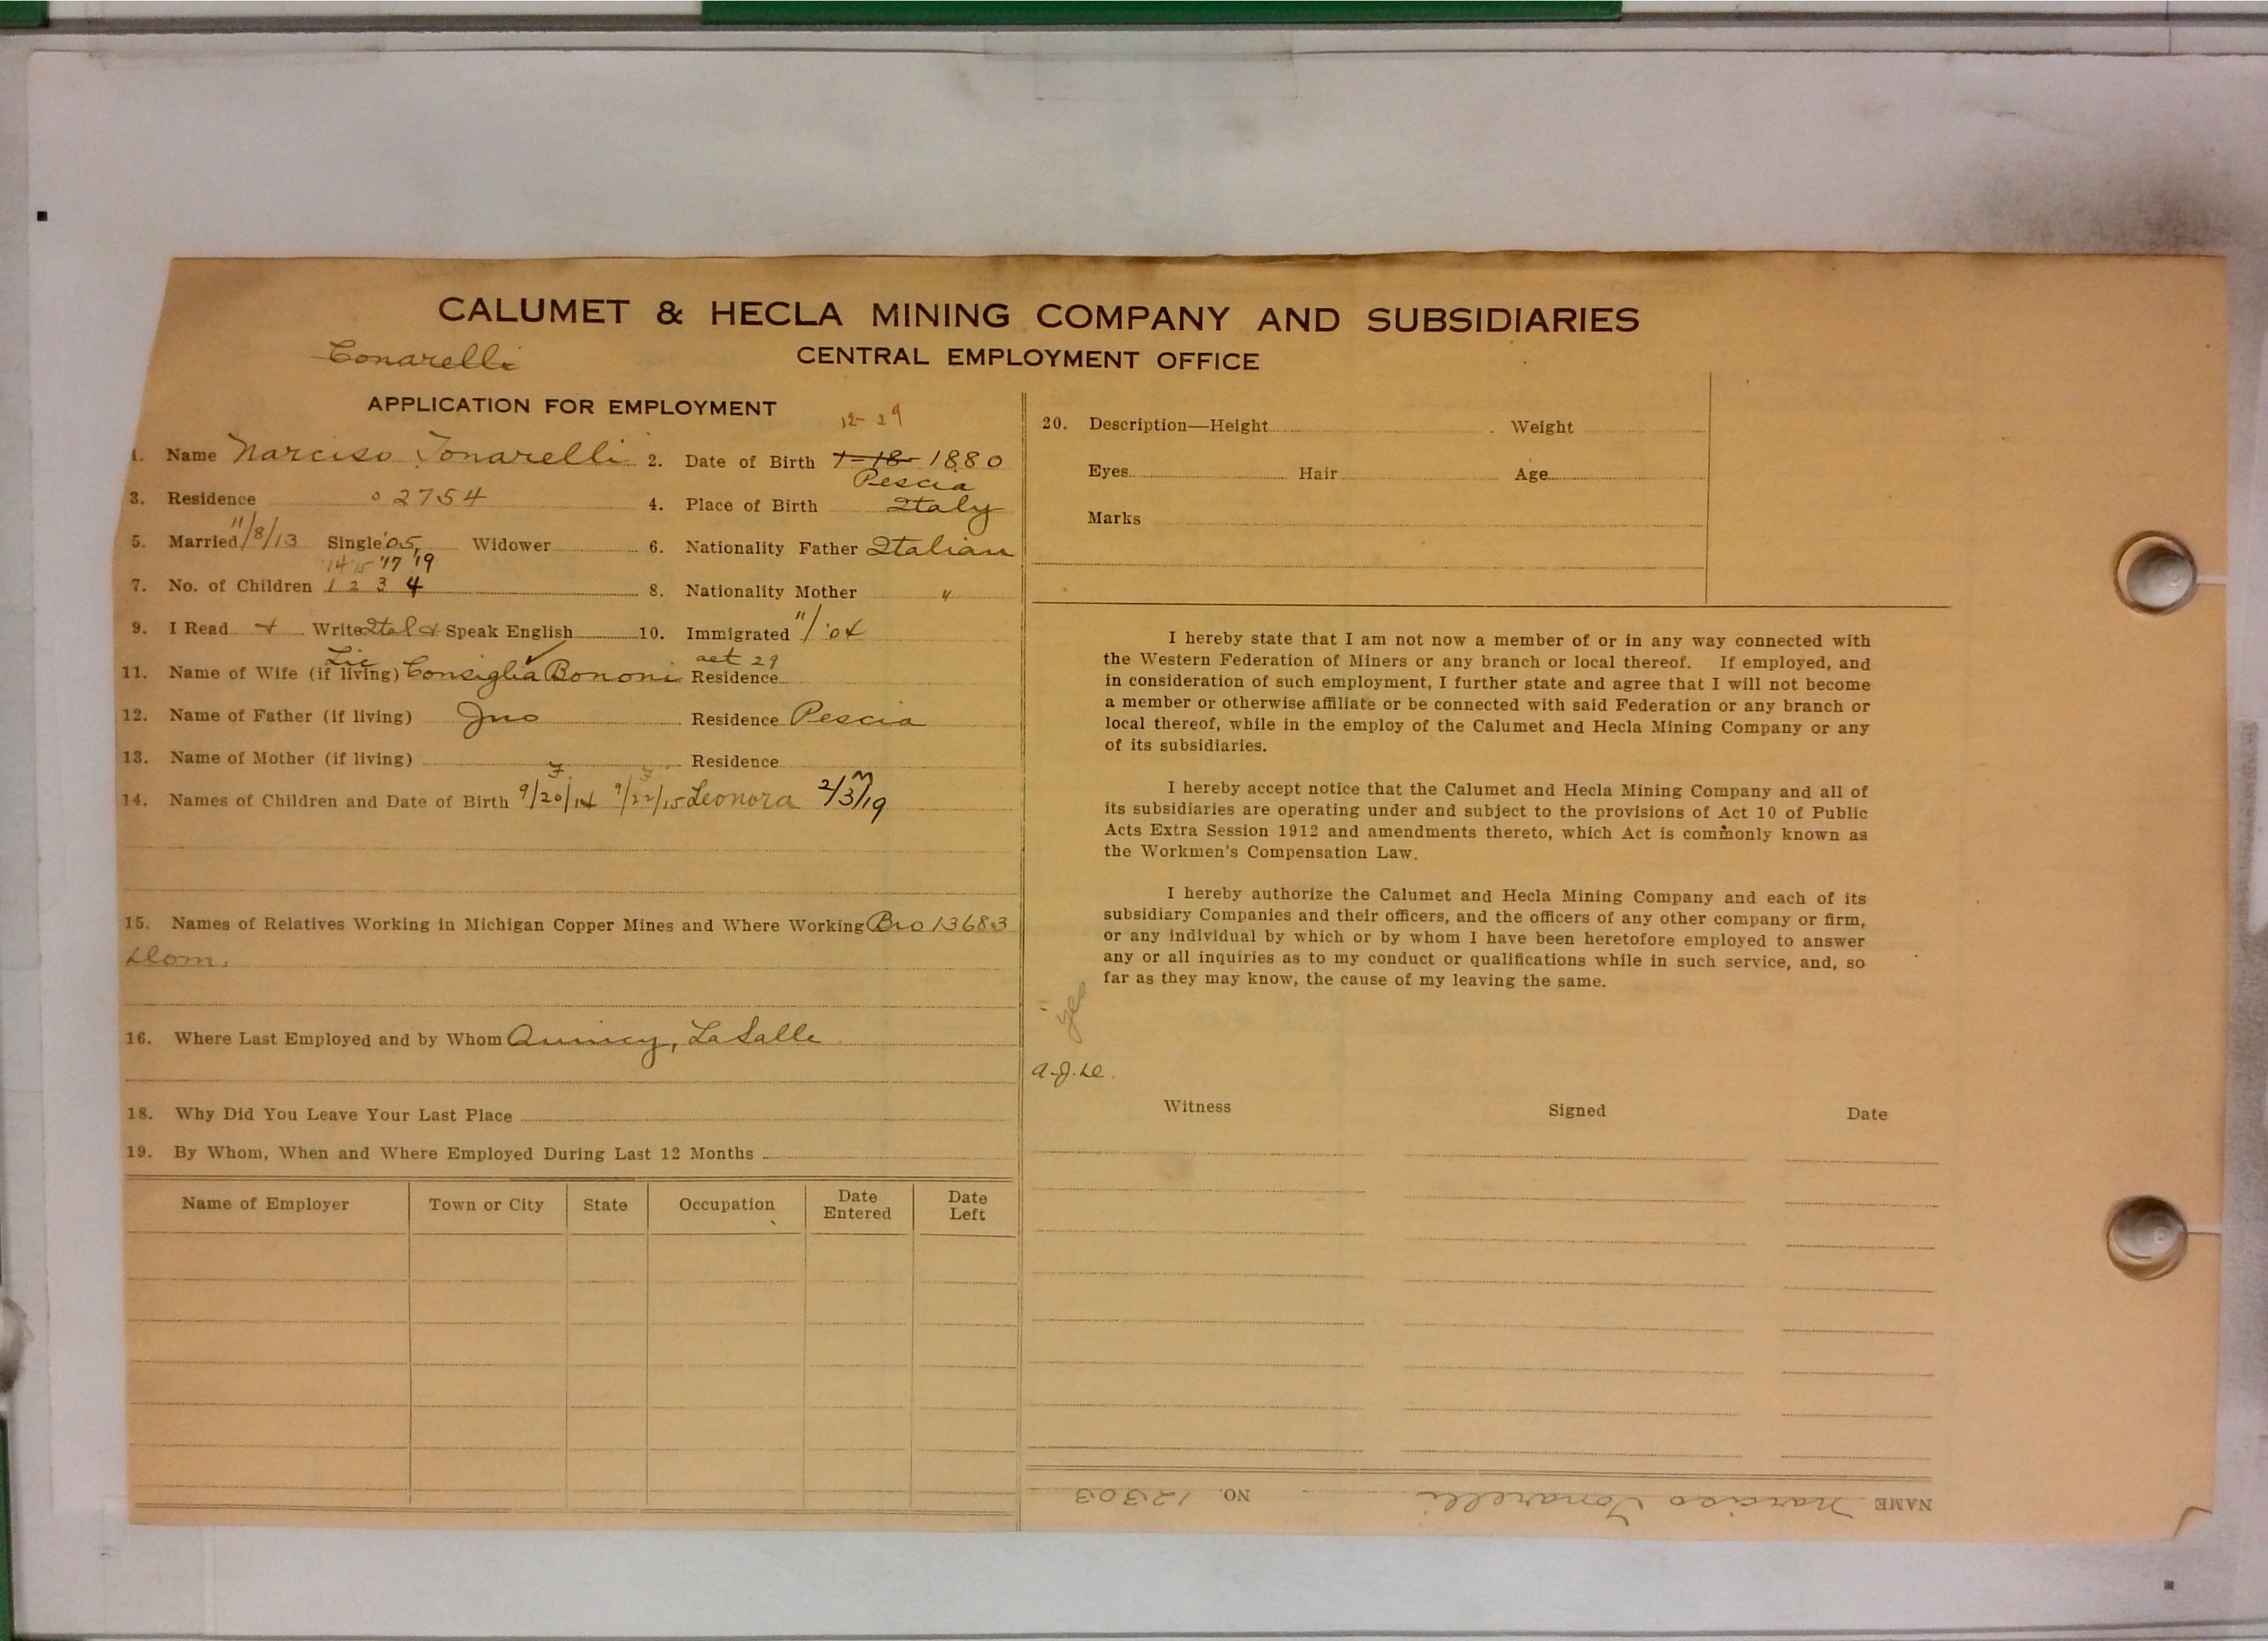 CALUMET & HECLA MINING COMPANY AND SUBSIDIARIES
Conarelli
CENTRAL EMPLOYMENT OFFICE
APPLICATION FOR EMPLOYMENT
12-29
1. Name Narciso Tonarelli 2. Date of Birth 7-18- 1880
Pescia
3. Residence o 2754 4. Place of Birth Italy
5. Married 11/8/13 Single '05, Widower 6. Nationality Father Italian
'14 '15 '17 '19
7. No. of Children 1 2 3 4 8. Nationality Mother "
9. I Read & Write Ital & Speak English 10. Immigrated 11/'04
aet 29
11. Name of Wife (if living) Consiglia Bononi Residence
12. Name of Father (if living) Jno Residence Pescia
13. Name of Mother (if living) Residence
F F M
14. Names of Children and Date of Birth 9/20/14 9/22/15 Leonora 2/3/19
15. Names of Relatives Working in Michigan Copper Mines and Where Working Bro 13683
Dom.
16. Where Last Employed and by Whom Quincy, LaSalle
18. Why Did You Leave Your Last Place
19. By Whom, When and Where Employed During Last 12 Months
Name of Employer Town or City State Occupation Date Entered Date Left
20. Description—Height Weight
Eyes Hair Age
Marks
I hereby state that I am not now a member of or in any way connected with
the Western Federation of Miners or any branch or local thereof. If employed, and
in consideration of such employment, I further state and agree that I will not become
a member or otherwise affiliate or be connected with said Federation or any branch or
local thereof, while in the employ of the Calumet and Hecla Mining Company or any
of its subsidiaries.
I hereby accept notice that the Calumet and Hecla Mining Company and all of
its subsidiaries are operating under and subject to the provisions of Act 10 of Public
Acts Extra Session 1912 and amendments thereto, which Act is commonly known as
the Workmen's Compensation Law.
I hereby authorize the Calumet and Hecla Mining Company and each of its
subsidiary Companies and their officers, and the officers of any other company or firm,
or any individual by which or by whom I have been heretofore employed to answer
any or all inquiries as to my conduct or qualifications while in such service, and, so
far as they may know, the cause of my leaving the same.
yes
Witness Signed Date
NAME Narciso Tonarelli NO. 12303